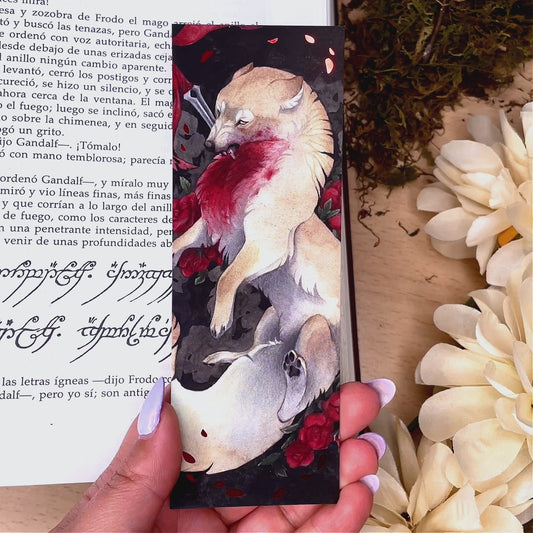 mismísima!
esa y zozobra de Frodo el mago arrojó el anillo al
tó y buscó las tenazas, pero Gand
e ordenó con voz autoritaria, echa
desde debajo de unas erizadas ceja
l anillo ningún cambio aparente.
levantó, cerró los postigos y corr
cureció, se hizo un silencio, y se o
ahora cerca de la ventana. El mag
o el fuego; luego se inclinó, sacó e
sobre la chimenea, y en seguid
ogó un grito.
dijo Gandalf—. ¡Tómalo!
ó con mano temblorosa; parecía m
ordenó Gandalf—, y míralo muy
miró y vio líneas finas, más finas
y que corrían a lo largo del anil
de fuego, como los caracteres de
n una penetrante intensidad, per
venir de unas profundidades ab
las letras ígneas —dijo Frodo
dalf—, pero yo sí; son antig